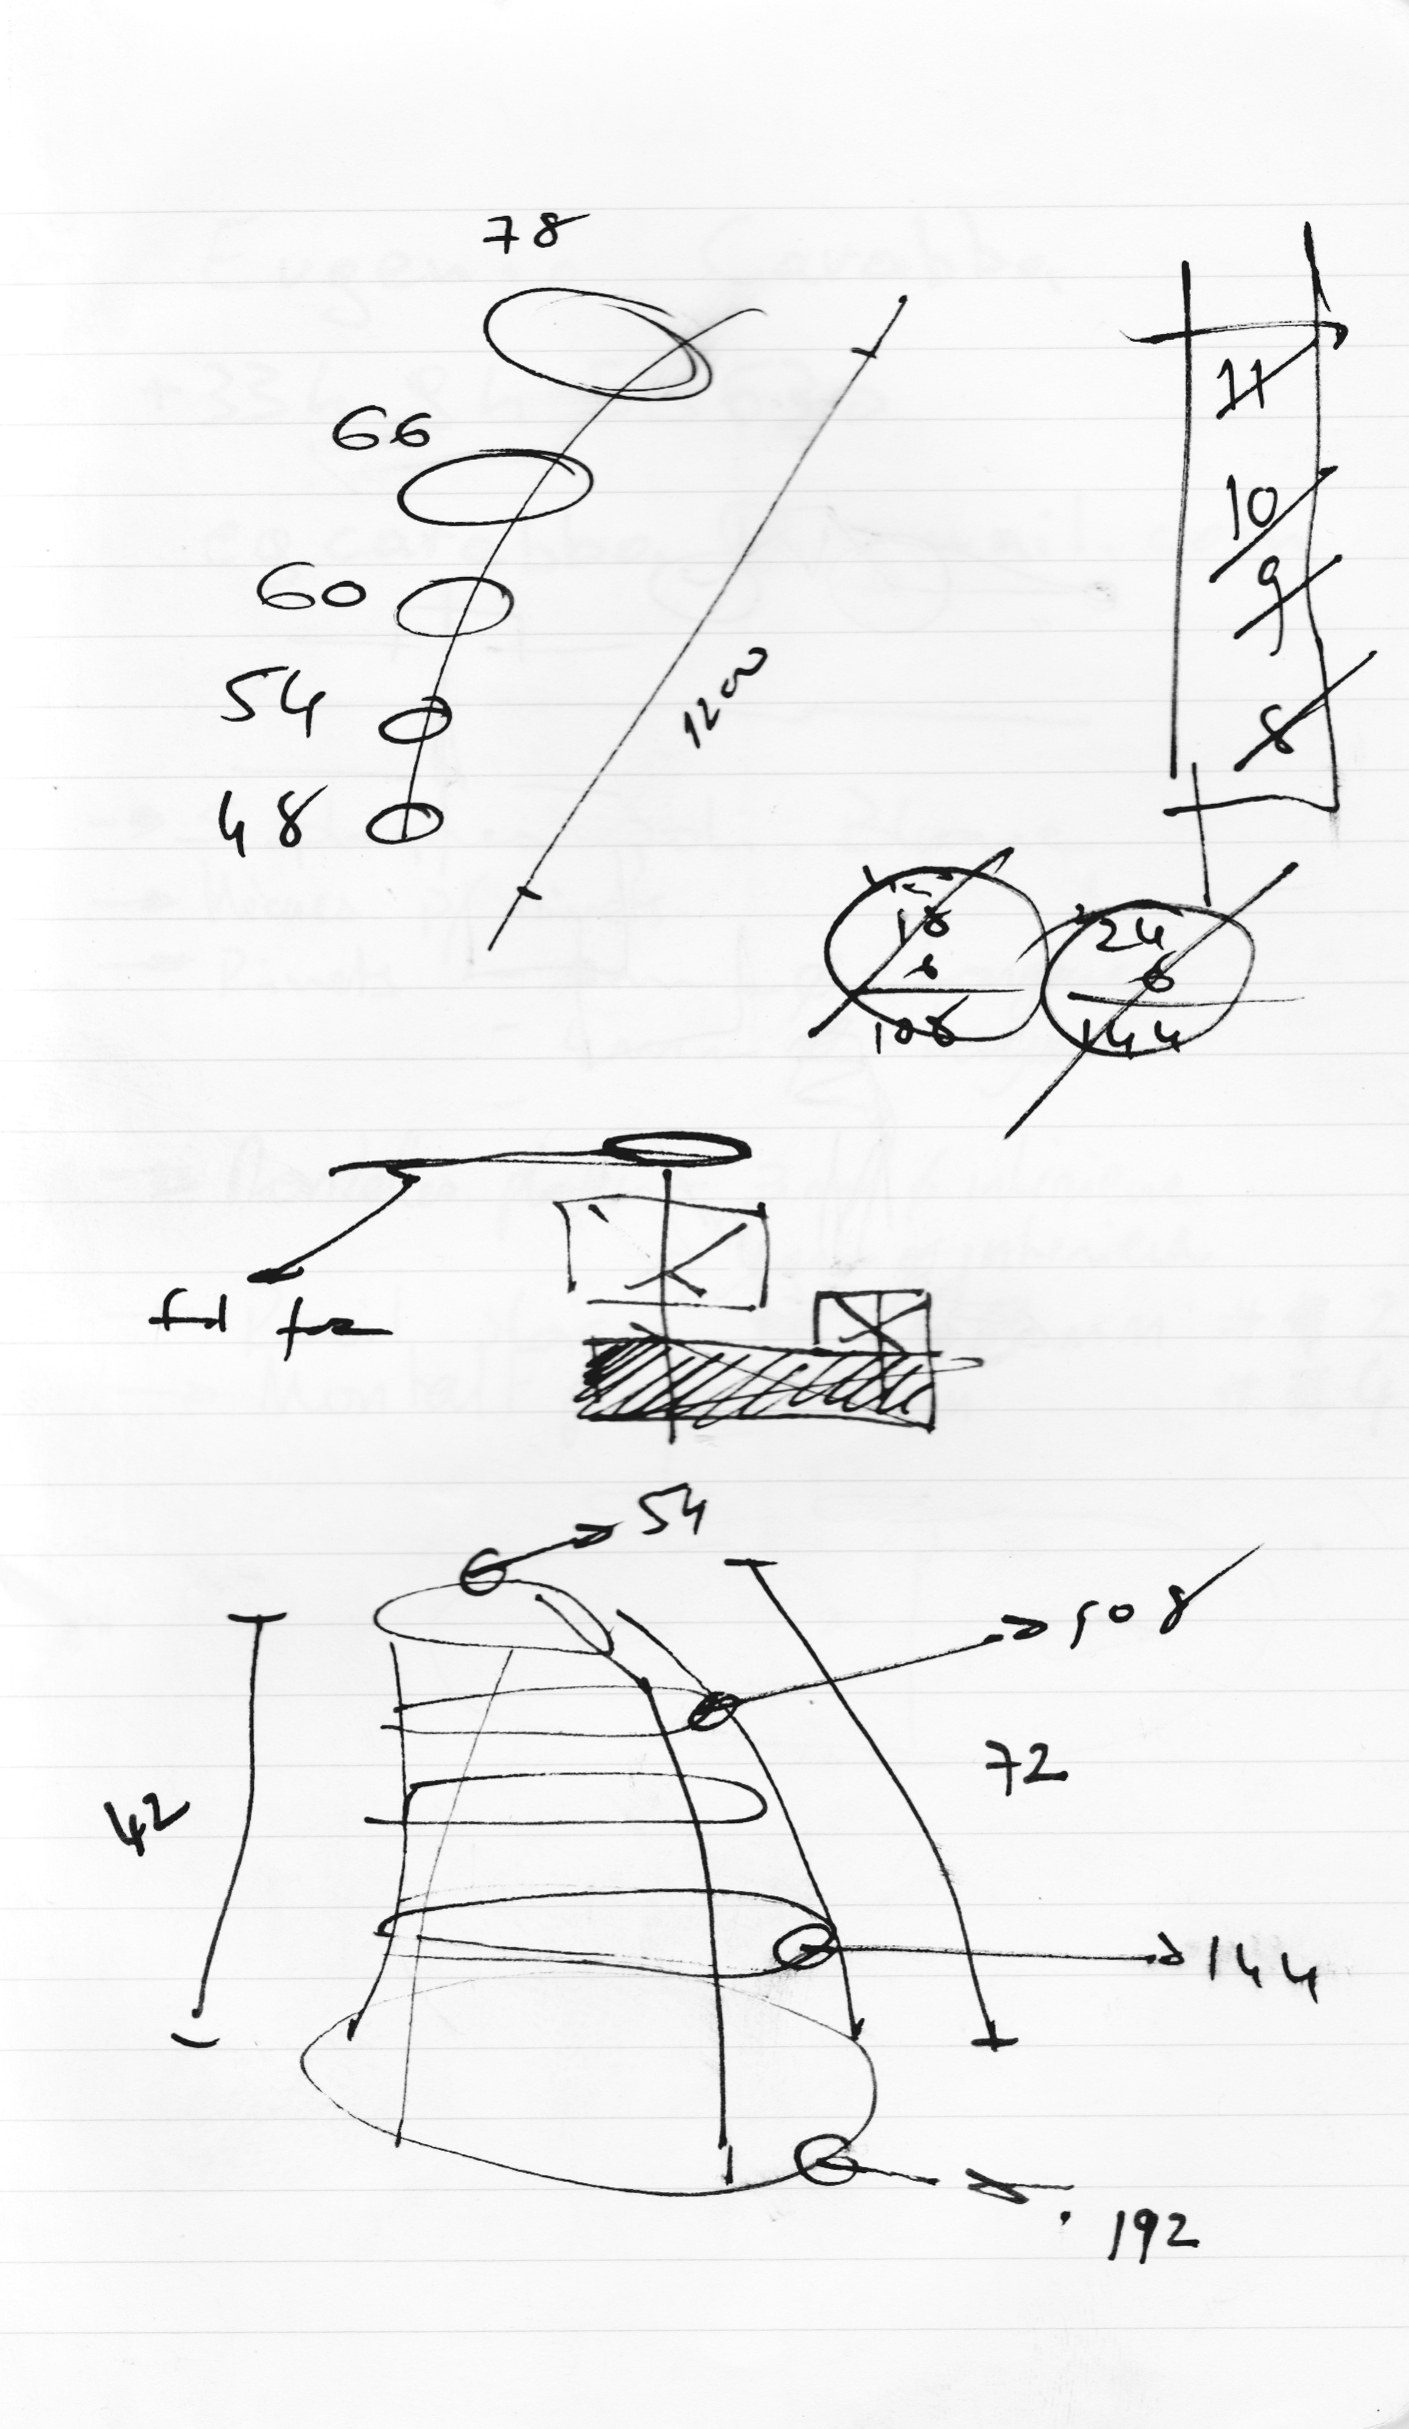 78
66
60
54
48
1200
11
10
9
8
18
6
108
24
6
144
54
108
72
42
144
192